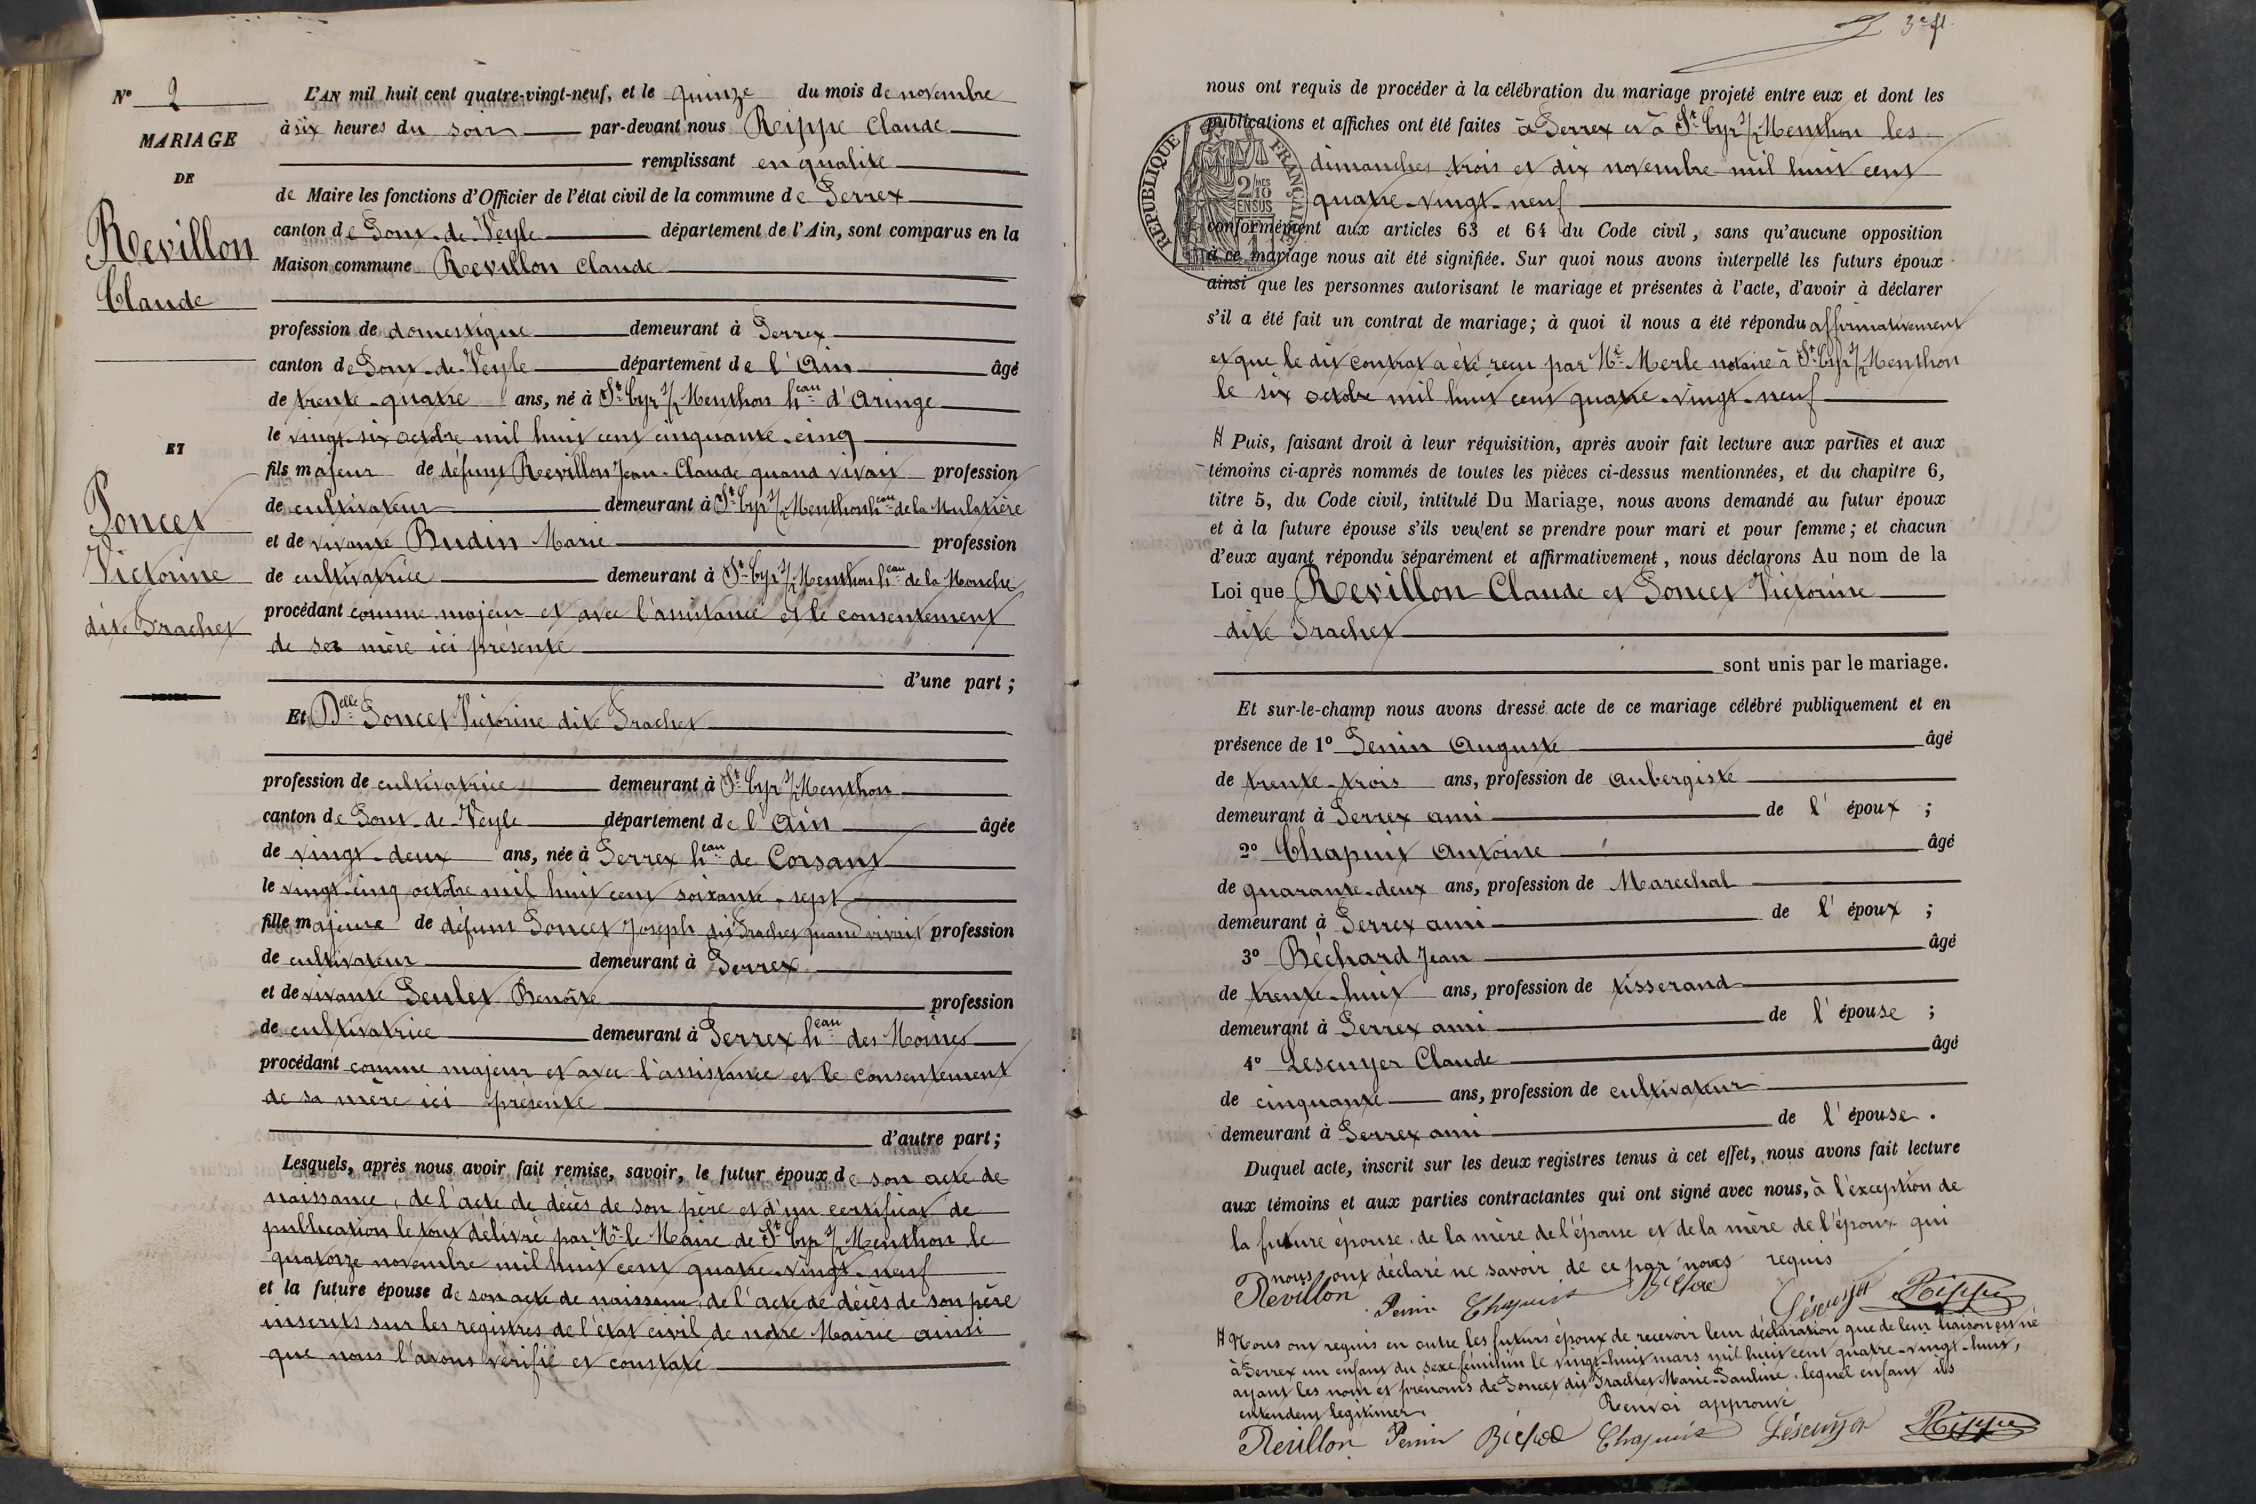 N° 2
MARIAGE
DE
Revillon
Claude
ET
Poncet
Victorine
dite Trachet
L'AN mil huit cent quatre-vingt-neuf, et le quinze du mois de novembre
à six heures du soir par-devant nous Rippe Claude
remplissant en qualité
de Maire les fonctions d'Officier de l'état civil de la commune de Perrex
canton de Pont-de-Veyle département de l'Ain, sont comparus en la
Maison commune Revillon Claude
profession de domestique demeurant à Perrex
canton de Pont-de-Veyle département de l'Ain âgé
de trente-quatre ans, né à St Cyr s/ Menthon heau d'Aringe
le vingt-six octobre mil huit cent cinquante-cinq
fils majeur de défunt Revillon Jean-Claude quand vivait profession
de cultivateur demeurant à St Cyr s/ Menthon heau de la Mulatière
et de vivante Budin Marie profession
de cultivatrice demeurant à St Cyr s/ Menthon heau de la Mouche
procédant comme majeur et avec l'assistance et le consentement
de sa mère ici présente
d'une part ;
Et Delle Poncet Victorine dite Trachet
profession de cultivatrice demeurant à St Cyr s/ Menthon
canton de Pont-de-Veyle département de l'Ain âgée
de vingt-deux ans, née à Perrex heau de Corsant
le vingt-cinq octobre mil huit cent soixante-sept
fille majeure de défunt Poncet Joseph dit Trachet quand vivait profession
de cultivateur demeurant à Perrex
et de vivante Peulet Benoîte profession
de cultivatrice demeurant à Perrex heau des Moines
procédant comme majeur et avec l'assistance et le consentement
de sa mère ici présente
d'autre part ;
Lesquels, après nous avoir fait remise, savoir, le futur époux de son acte de
naissance, de l'acte de décès de son père et d'un certificat de
publication le tout délivré par Mr le Maire de St Cyr s/ Menthon le
quatorze novembre mil huit cent quatre-vingt-neuf
et la future épouse de son acte de naissance, de l'acte de décès de son père
inscrits sur les registres de l'état civil de notre Mairie ainsi
que nous l'avons vérifié et constaté
3e fl.
nous ont requis de procéder à la célébration du mariage projeté entre eux et dont les
publications et affiches ont été faites à Perrex et à St Cyr s/ Menthon les
dimanches trois et dix novembre mil huit cent
quatre-vingt-neuf
RÉPUBLIQUE FRANÇAISE
2/10 EN SUS
conformément aux articles 63 et 64 du Code civil, sans qu'aucune opposition
à ce mariage nous ait été signifiée. Sur quoi nous avons interpellé les futurs époux
ainsi que les personnes autorisant le mariage et présentes à l'acte, d'avoir à déclarer
s'il a été fait un contrat de mariage ; à quoi il nous a été répondu affirmativement
et que le dit contrat a été reçu par Me Merle notaire à St Cyr s/ Menthon
le six octobre mil huit cent quatre-vingt-neuf
# Puis, faisant droit à leur réquisition, après avoir fait lecture aux parties et aux
témoins ci-après nommés de toutes les pièces ci-dessus mentionnées, et du chapitre 6,
titre 5, du Code civil, intitulé Du Mariage, nous avons demandé au futur époux
et à la future épouse s'ils veulent se prendre pour mari et pour femme ; et chacun
d'eux ayant répondu séparément et affirmativement, nous déclarons Au nom de la
Loi que Revillon Claude et Poncet Victorine
dite Trachet
sont unis par le mariage.
Et sur-le-champ nous avons dressé acte de ce mariage célébré publiquement et en
présence de 1° Penin Auguste âgé
de trente-trois ans, profession de aubergiste
demeurant à Perrex ami de l'époux ;
2° Chapuis Antoine âgé
de quarante-deux ans, profession de Marechal
demeurant à Perrex ami de l'époux ;
3° Béchard Jean âgé
de trente-huit ans, profession de tisserand
demeurant à Perrex ami de l'épouse ;
4° Lescuyer Claude âgé
de cinquante ans, profession de cultivateur
demeurant à Perrex ami de l'épouse.
Duquel acte, inscrit sur les deux registres tenus à cet effet, nous avons fait lecture
aux témoins et aux parties contractantes qui ont signé avec nous, à l'exception de
la future épouse, de la mère de l'épouse et de la mère de l'époux qui
nous ont déclaré ne savoir de ce par nous requis
Revillon Penin Chapuis Lescuyer Rippe
# Nous ont requis en outre les futurs époux de recevoir leur déclaration que de leur liaison est né
à Perrex un enfant du sexe féminin le vingt-huit mars mil huit cent quatre-vingt-huit,
ayant les nom et prénoms de Poncet dit Trachet Marie-Pauline, lequel enfant ils
entendent légitimer.
Renvoi approuvé
Revillon Penin Béchard Chapuis Lescuyer Rippe